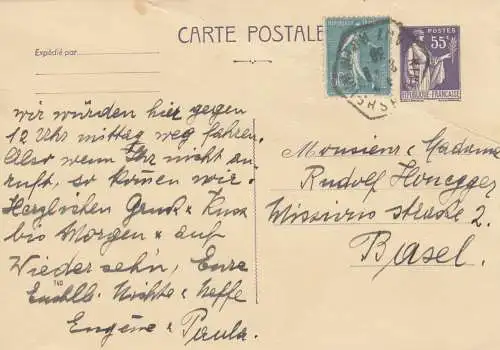 CARTE POSTALE
Expédié par
POSTES
55c
REPUBLIQUE-FRANÇAISE
wir würden hier gegen
12 Uhr mittag weg fahren.
Also wenn Ihr nicht an-
ruft, so komen wir.
Herzlichen Gruß & Kuss
bis Morgen & auf
Wiedersehn, Eure
Nichte & Neffe
Eugène & Paula.
Monsieur & Madame
Rudolf Honegger
Missions strasse 2.
Basel.